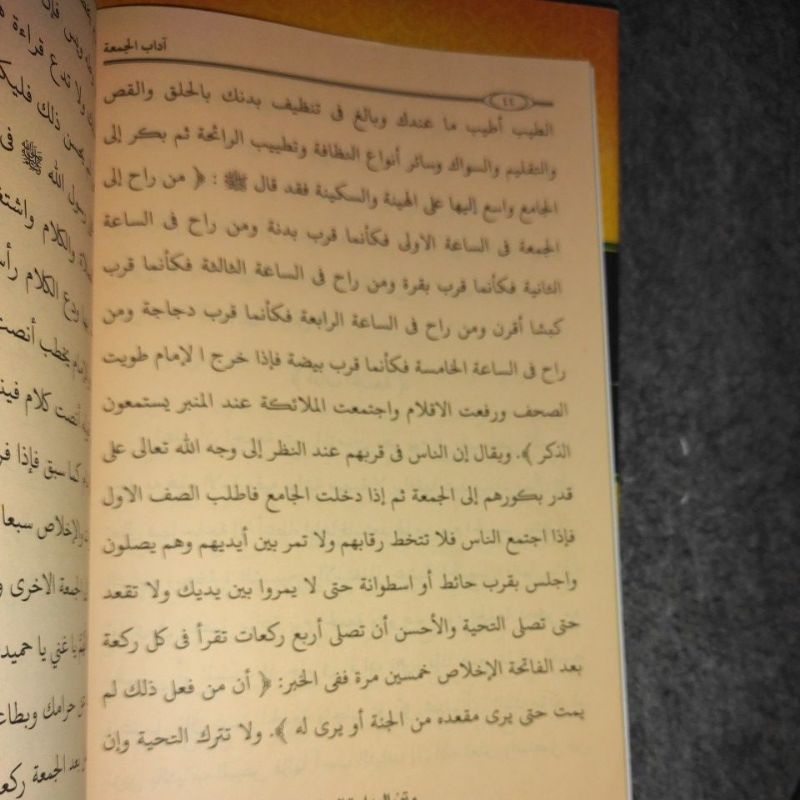 آداب الجمعة
٤٤
الطيب أطيب ما عندك وبالغ فى تنظيف بدنك بالحلق والقص
والتقليم والسواك وسائر أنواع النظافة وتطييب الرائحة ثم بكر إلى
الجامع واسع إليها على الهينة والسكينة فقد قال ﷺ : ﴿ من راح إلى
الجمعة فى الساعة الاولى فكأنما قرب بدنة ومن راح فى الساعة
الثانية فكأنما قرب بقرة ومن راح فى الساعة الثالثة فكأنما قرب
كبشا أقرن ومن راح فى الساعة الرابعة فكأنما قرب دجاجة ومن
راح فى الساعة الخامسة فكأنما قرب بيضة فإذا خرج ا لإمام طويت
الصحف ورفعت الاقلام واجتمعت الملائكة عند المنبر يستمعون
الذكر ﴾. ويقال إن الناس فى قربهم عند النظر إلى وجه الله تعالى على
قدر بكورهم إلى الجمعة ثم إذا دخلت الجامع فاطلب الصف الاول
فإذا اجتمع الناس فلا تتخط رقابهم ولا تمر بين أيديهم وهم يصلون
واجلس بقرب حائط أو اسطوانة حتى لا يمروا بين يديك ولا تقعد
حتى تصلى التحية والأحسن أن تصلى أربع ركعات تقرأ فى كل ركعة
بعد الفاتحة الإخلاص خمسين مرة ففى الخبر: ﴿ أن من فعل ذلك لم
يمت حتى يرى مقعده من الجنة أو يرى له ﴾. ولا تترك التحية وإن
ولا تدع قراءة
ذلك فليك
رسول الله ﷺ فى
والكلام واشتغ
ودع الكلام رأس
يخطب أنصت
أنصت كلام فيذ
كما سبق فإذا فر
والإخلاص سبعا
الجمعة الاخرى و
يا غني يا حميد
حرامك وبطاع
بعد الجمعة ركع